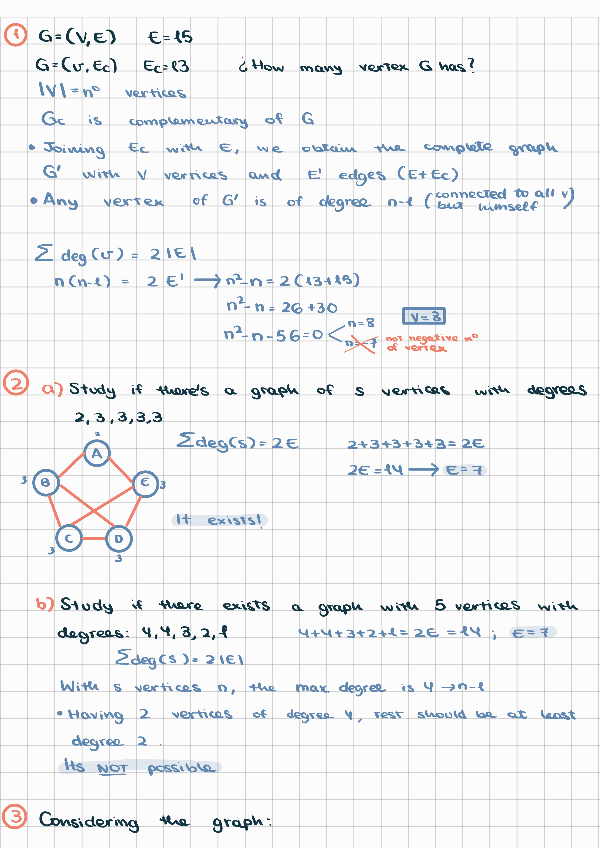 1 G=(V,E) E=15
G=(v,Ec) Ec=13 ¿How many vertex G has?
|V|=nº vertices
Gc is complementary of G
• Joining Ec with E, we obtain the complete graph
G' with V vertices and E' edges (E+Ec)
• Any vertex of G' is of degree n-1 (connected to all v but himself)
Σ deg(v) = 2|E|
n(n-1) = 2E' → n²-n=2(13+15)
n²-n=26+30
n²-n-56=0 n=8 V=8
n=-7 not negative nº of vertex
2 a) Study if there's a graph of 5 vertices with degrees
2,3,3,3,3
Σdeg(s)=2E 2+3+3+3+3=2E
2E=14 → E=7
2
A
3 B E 3
It exists!
C D
3 3
b) Study if there exists a graph with 5 vertices with
degrees: 4,4,3,2,1 4+4+3+2+1=2E=14; E=7
Σdeg(s)=2|E|
With 5 vertices n, the max degree is 4 → n-1
• Having 2 vertices of degree 4, rest should be at least
degree 2.
Its NOT possible
3 Considering the graph: